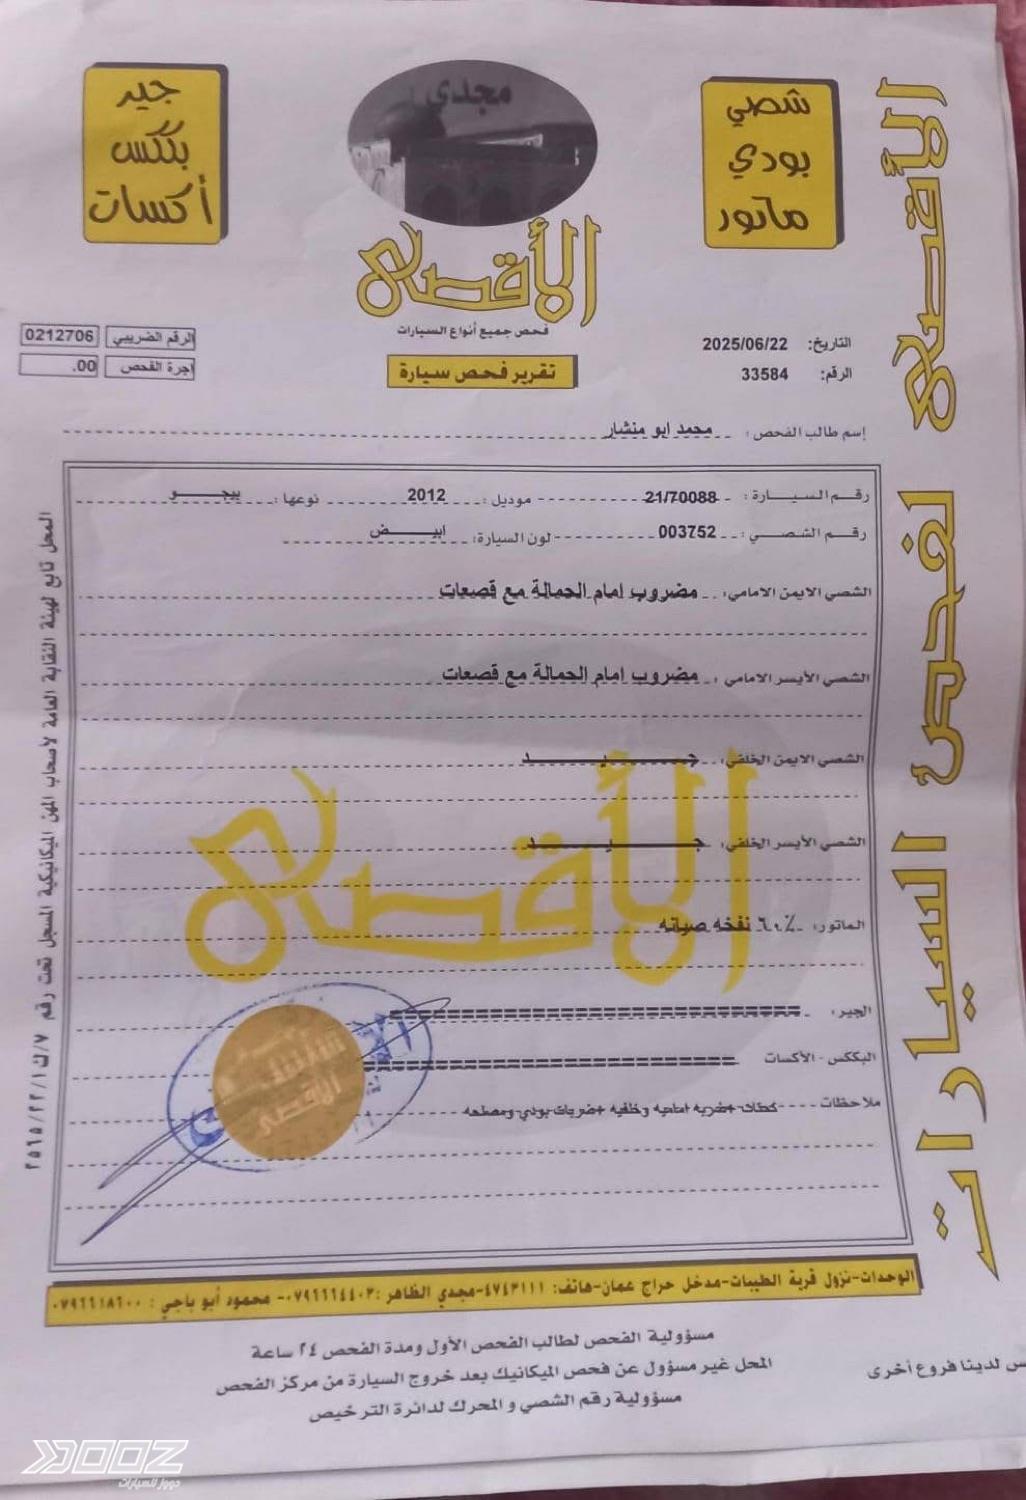 جير
بككس
أكسات
مجدي
شصي
بودي
ماتور
الأقصى
فحص جميع أنواع السيارات
تقرير فحص سيارة
الرقم الضريبي 0212706
اجرة الفحص .00
التاريخ: 2025/06/22
الرقم: 33584
إسم طالب الفحص: محمد ابو منشار
رقم السيارة: 21/70088 موديل: 2012 نوعها: بيجو
رقم الشصي: 003752 لون السيارة: ابيض
الشصي الايمن الامامي: مضروب امام الحمالة مع قصعات
الشصي الأيسر الامامي: مضروب امام الحمالة مع قصعات
الشصي الايمن الخلفي: جيد
الشصي الأيسر الخلفي: جيد
الماتور: ٦٠٪ نفخه صيانه
الجير: ==============================
البككس - الأكسات ==============================
ملاحظات ضربه اماميه وخلفيه +ضربات بودي ومصلحه
الأقصى
الأقصى
الوحدات-نزول قرية الطيبات-مدخل حراج عمان-هاتف: ٤٧٤٣١١١-مجدي الظاهر: ٠٧٩٦٦٦٤٤٠٣- محمود أبو باجي: ٠٧٩٦٦١٨٦٠٠
مسؤولية الفحص لطالب الفحص الأول ومدة الفحص ٢٤ ساعة
المحل غير مسؤول عن فحص الميكانيك بعد خروج السيارة من مركز الفحص
مسؤولية رقم الشصي و المحرك لدائرة الترخيص
س لدينا فروع أخرى
المحل تابع لهيئة النقابة العامة لأصحاب المهن الميكانيكية المسجل تحت رقم ٧/ك١/٢٢/٢٥٦٥
الأقصى لفحص السيارات
DOOZ
دووز للسيارات